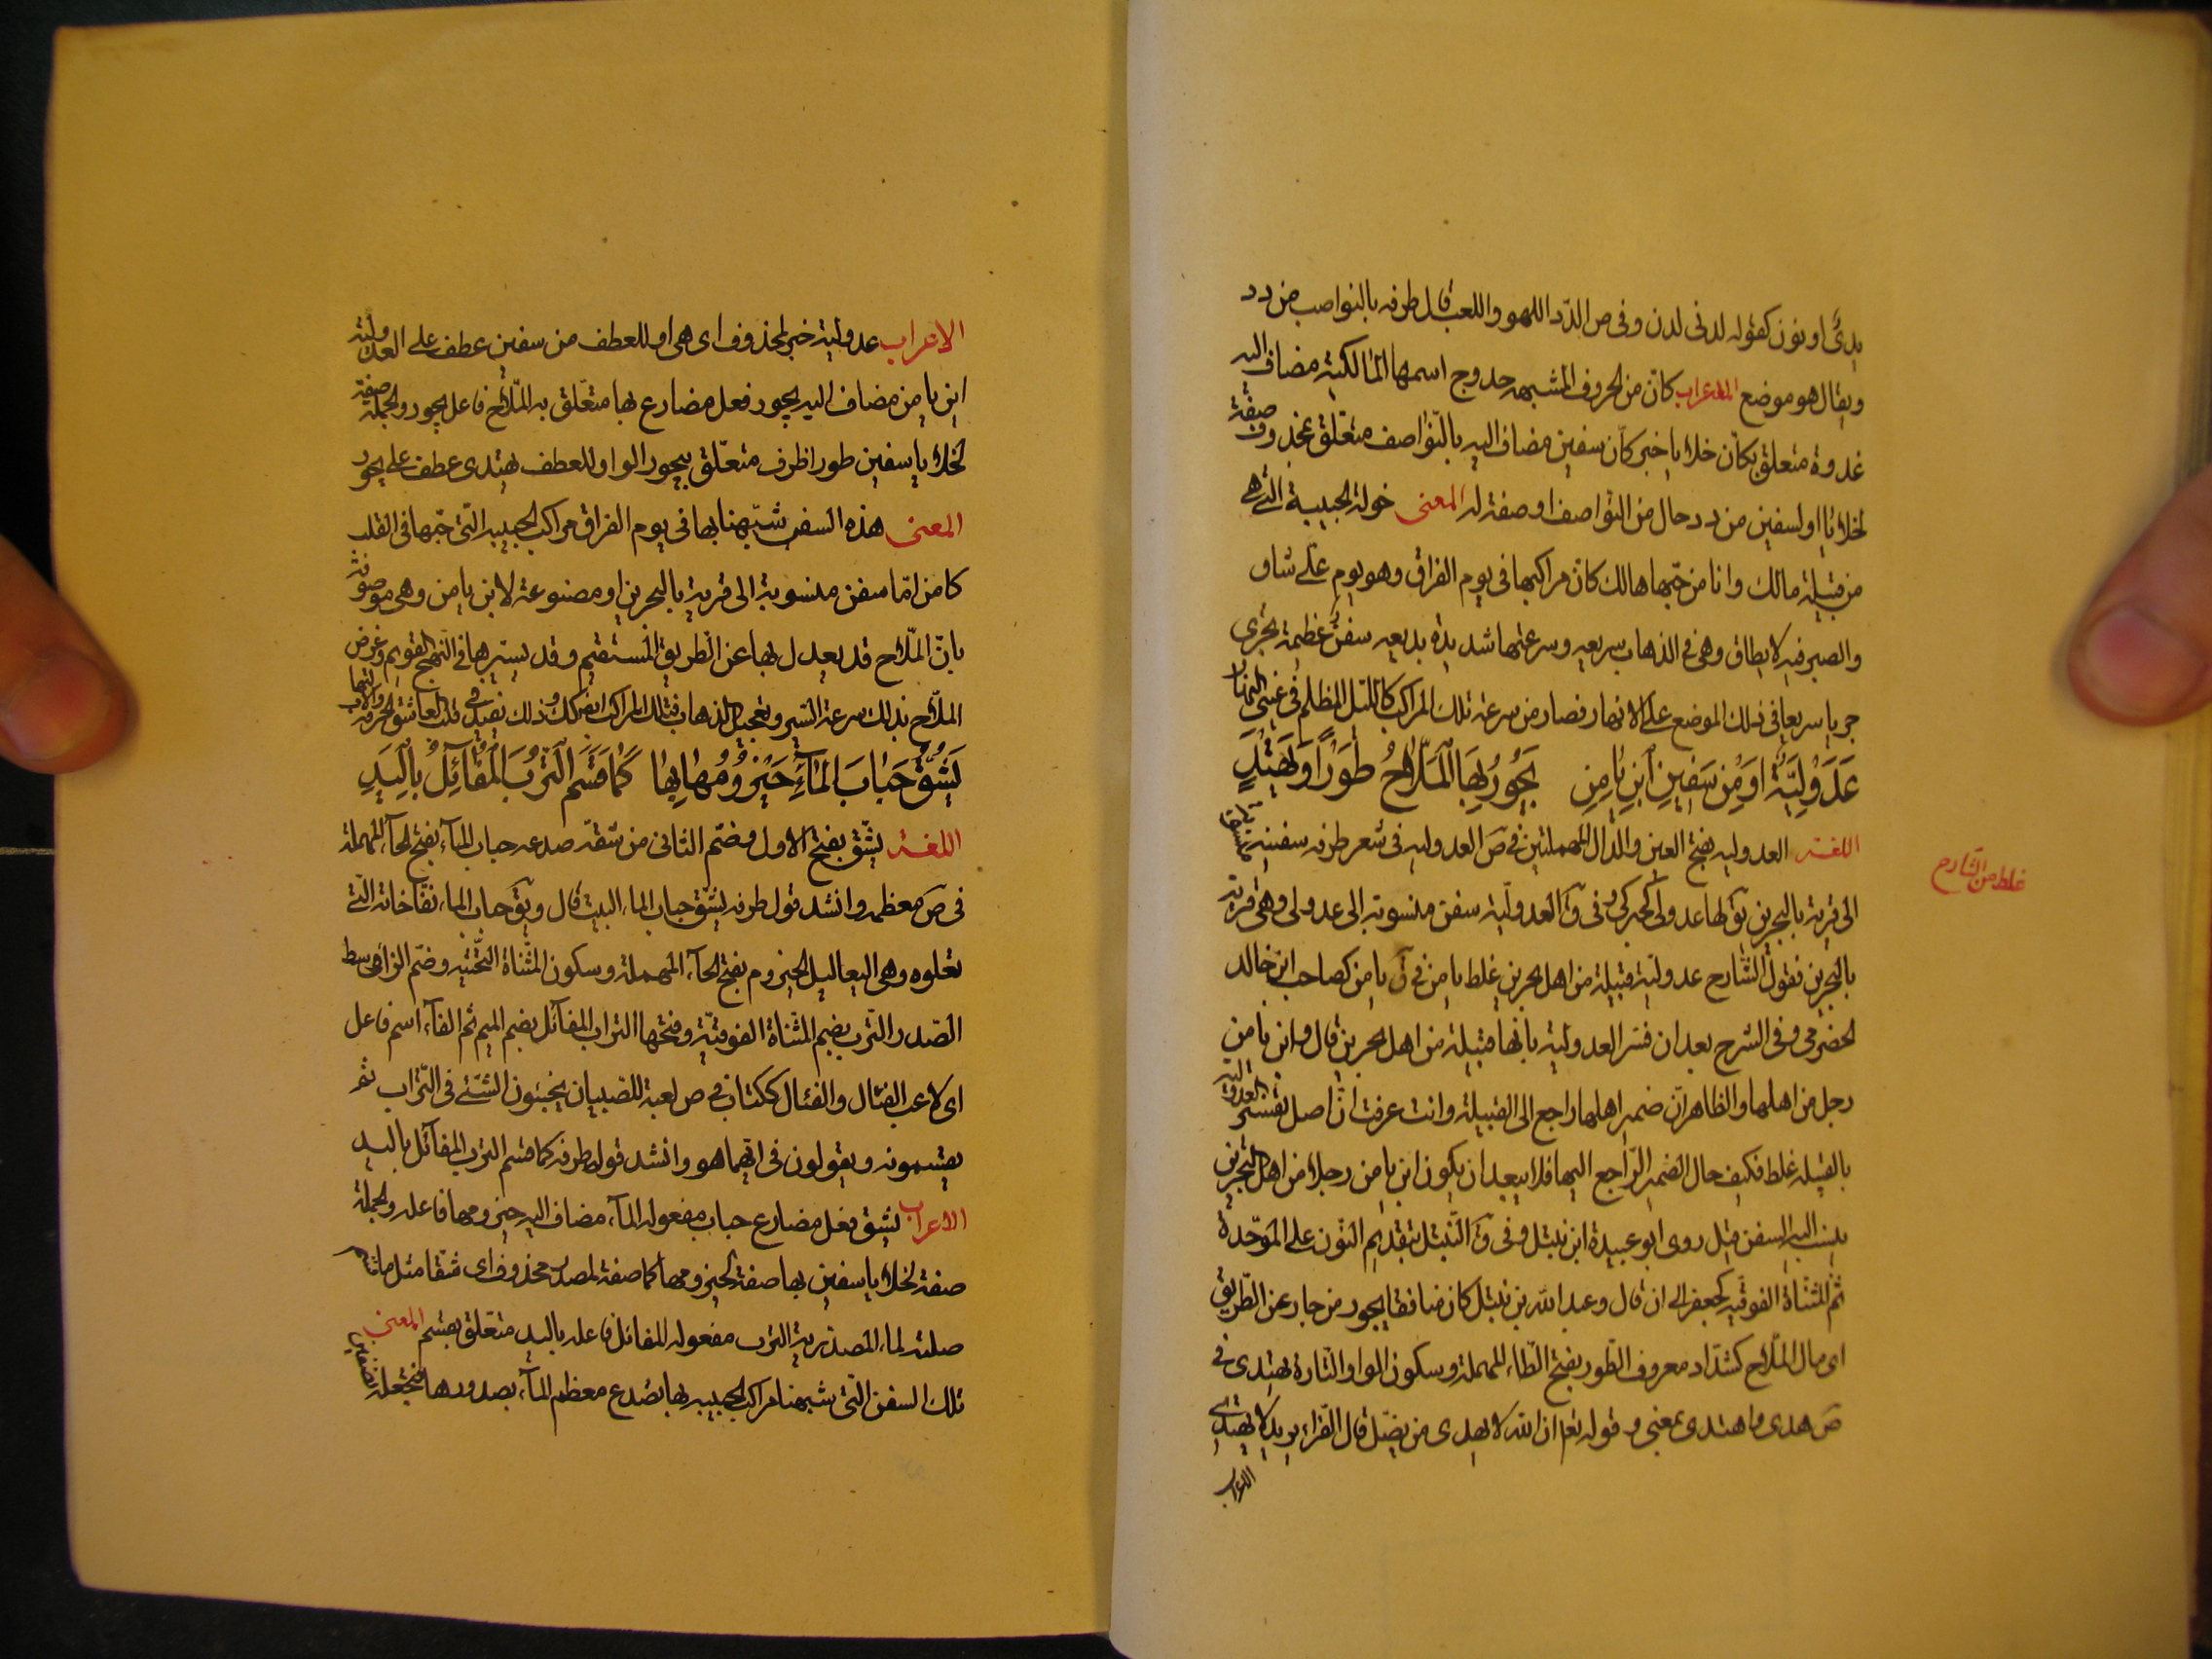 يدىً او نون كقوله لدنى لدن وفى ص الدّد اللهو واللعب قال طرفه بالنواصب من دد
ويقال هو موضع الاعراب كانّ من الحروف المشبهه حدوج اسمها المالكية مضاف اليه
غدوة متعلق بكانّ خلايا خبر كانّ سفين مضاف اليه بالنّواصف متعلّق بمحذوف صفة
لخلايا او لسفين من دد حال من النّواصف او صفة له المعنى خولة الحبيبة التى هى
من قبيلة مالك وانا من حبّها هالك كانّ مراكبها فى يوم الفراق وهو يوم علىّ شاق
والصبر فيه لا يطاق وهى فى الذهاب سريعه وسرعتها شديدة بديعه سفن عظيمة تجرى
جريا سريعا فى ذلك الموضع على الانهار فصار من سرعة تلك المراكب كالليل المظلم فى عينى النهار
عَدَوْلِيَّةٌ اَوْ مِنْ سَفِينِ ابْنِ يَامِنِ يَجُورُ بِهَا الْمَلَّاحُ طَوْرًا وَيَهْتَدِي
اللغة العدوليه بفتح العين والدال المهملتين فى ص العدوليه فى شعر طرفه سفينة منسوبة
الى قرية بالبحرين يقَ لها عدولى كحبركى وفى ق العدوليّة سفن منسوبة الى عدولى وهى قرية
بالبحرين فقول الشّارح عدوليّة قبيلة من اهل بحرين غلط يامن فى ق يامن كصاحب ابن خالد
غلط من الشارح
الحضرمى وفى الشرح بعد ان فسر العدولية بانها قبيلة من اهل بحرين قال وابن يامن
رجل من اهلها والظاهر انّ ضمير اهلها راجع الى القبيلة وانت عرفت انّ اصل تفسير العدولية
بالقبيلة غلط فكيف حال الضمير الرّاجع اليها فلا يبعد ان يكون ابن يامن رجلا من اهل البحرين
ينسب اليه السفن قيل روى ابو عبيدة ابن نبتل وفى ق النّبتل بتقديم النّون على الموحّدة
ثم المثنّاة الفوقيه كجعفر الى ان قال وعبد اللّه بن نبتل كان منافقا يجور من جار عن الطّريق
اى مال الملّاح كشدّاد معروف الطّور بفتح الطّاء المهملة وسكون الواو التّارة يهتدى فى
ص هدى واهتدى بمعنى وقوله تعا ان اللّه لا يهدى من يضلّ قال الفرّاء يريد لا يهتدى
الاعراب
الاعراب عدولية خبر لمحذوف اى هى او للعطف من سفين عطف على العدولية
ابن يامن مضاف اليه يجور فعل مضارع بها متعّلق به الملّاح فاعل يجور والجملة صفة
لخلايا سفين طورا ظرف متعلّق بيجور الواو للعطف يهتدى عطف على يجور
المعنى هذه السفن شبّهنا بها فى يوم الفراق مراكب الحبيبه التّى حبّها فى القلب
كامن امّا سفن منسوبة الى قرية بالبحرين او مصنوعة لابن يامن وهى موصوفة
بانّ الملّاح قد يعدل بها عن الطّريق المستقيم وقد يسيّرها فى النهج القويم وغرض
الملّاح بذلك سرعة السّير وتعجيل الذهاب فتلك المراكب ايضا كك وذلك فى قلب العاشق الحرقة والالتهاب
يَشُقُّ حَبَابَ الْمَاءِ حَيْزُومُهَا بِهَا كَمَا قَسَمَ التُّرْبَ الْمُفَائِلُ بِالْيَدِ
اللغة يشّق بفتح الاول وضّم الثانى من شّقّه صدعه حباب الماء بفتح الحاء المهملة
فى ص معظمه وانشد قول طرفه يشّق حباب الماء البيت قال ويقَ حباب الماء نفّاخاته الّتى
تعلوه وهى اليعاليل الحيزوم بفتح الحاء المهملة وسكون المثّناة التّحتيّه وضّم الزاى وسط
الصّدر التّرب بضم المثّناة الفوقيّة وفتحها التراب المفائل بضم الميم ثم الفاء اسم فاعل
اى لاعب الفئال والفئال ككتاب فى ص لعبة للصّبيان يخبئون الشئ فى التّراب ثم
يقتسمونه ويقولون فى ايّهما هو وانشد قول طرفه كما قسم الترب المفائل باليد
الاعراب يشق فعل مضارع حباب مفعوله الماء مضاف اليه حيزومها فاعله والجملة
صفة لخلايا سفين بها صفة لحيزومها كما صفة لمصدر محذوف اى شقّا مثل ما قسم
صلة لما المصدّرية الترب مفعوله المفائل فاعله باليد متعّلق بقسم المعنى
تلك السفن التّى شبهنا مراكب الحبيبه بها تصدع معظم الماء بصدورها فتجعله نصفين